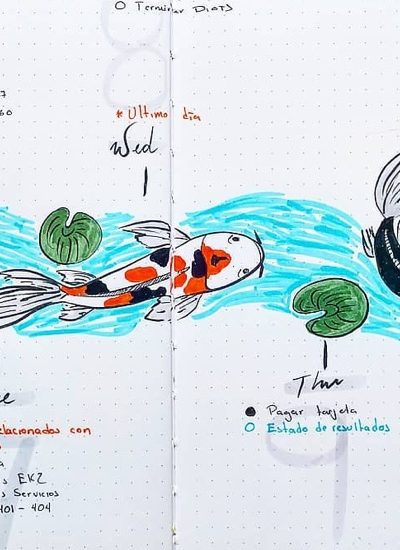 O Terminar DIOTS
7
60
* Ultimo dia
Wed
Thu
● Pagar tarjeta
O Estado de resultados
e
elacionados con
a
s EKZ
s Servicios
401 - 404